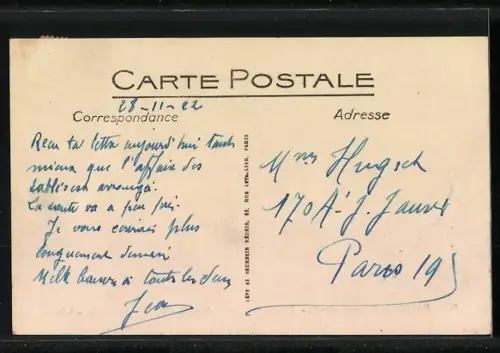 CARTE POSTALE
Correspondance
Adresse
28-11-22
Reçu ta lettre aujourd'hui tant
mieux que l'affaire des
soit arrangé.
La va a peu près.
Je vous écrirai plus
longuement demain
Mille baisers à toutes les deux
Jean
Mme Hugsch
170 A. J. Jaurès
Paris 19
LÉVY ET NEURDEIN RÉUNIS, 44, RUE LETELLIER, PARIS